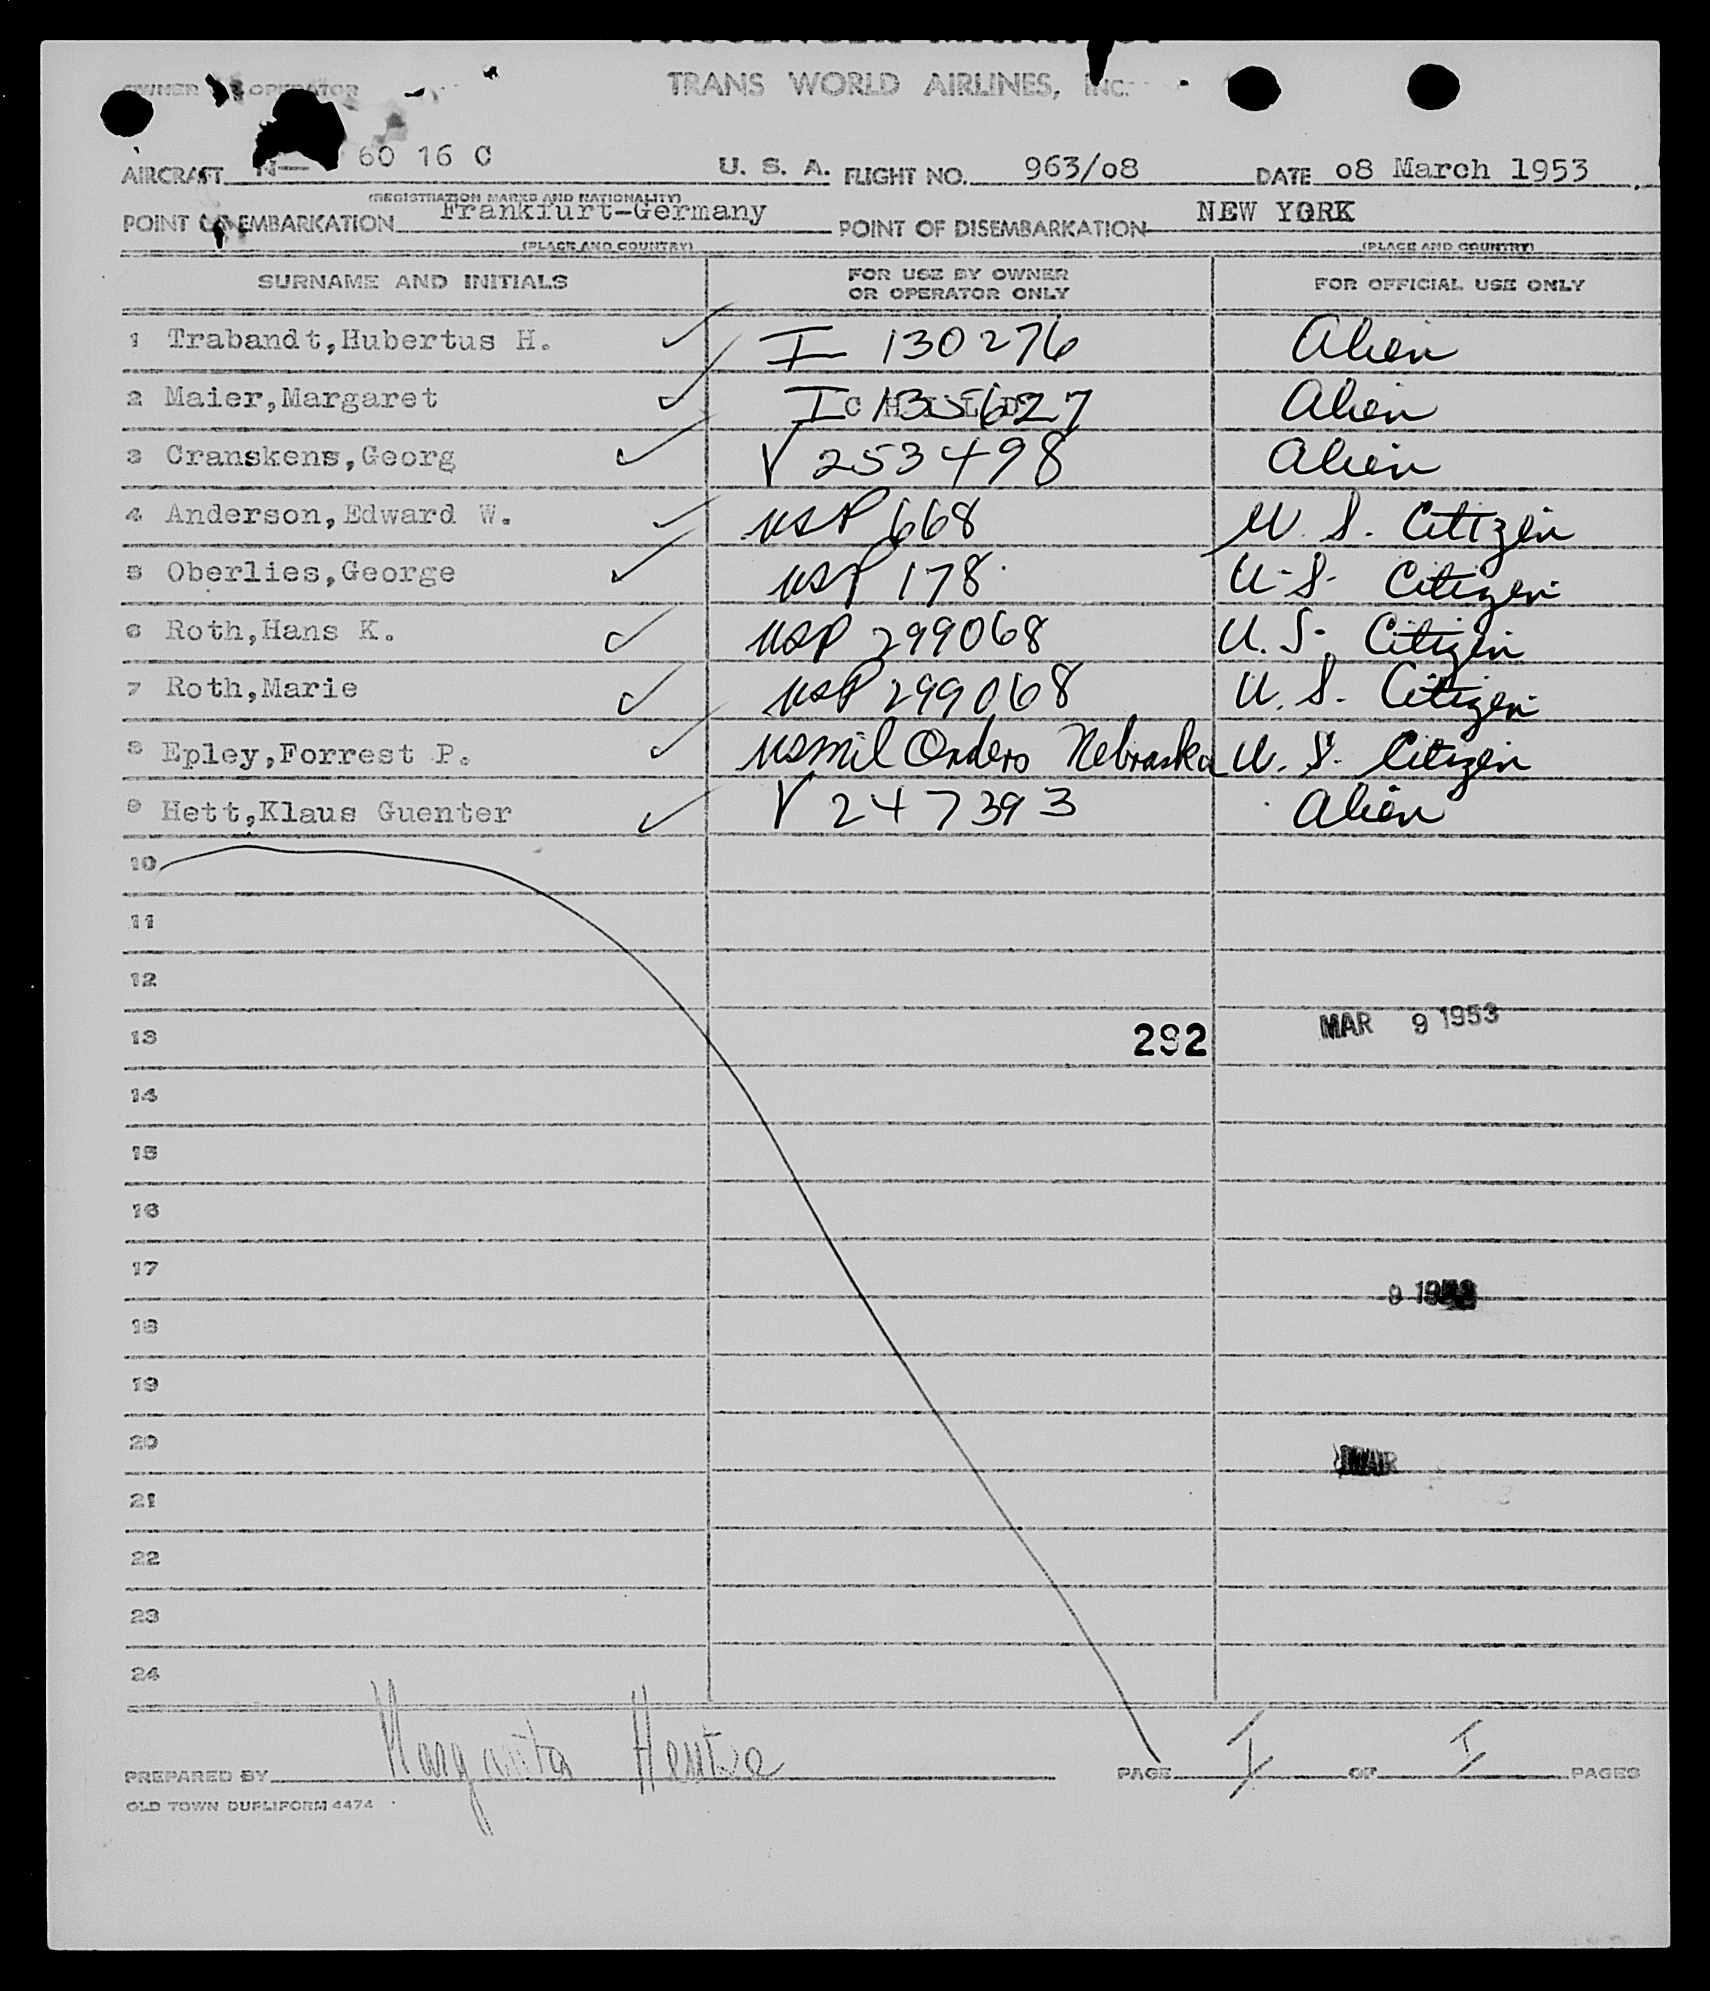 PASSENGER MANIFEST
OWNER OR OPERATOR TRANS WORLD AIRLINES, INC.
AIRCRAFT N— 60 16 C U. S. A. FLIGHT NO. 963/08 DATE 08 March 1953
(REGISTRATION MARKS AND NATIONALITY)
POINT OF EMBARKATION Frankfurt-Germany POINT OF DISEMBARKATION NEW YORK
(PLACE AND COUNTRY) (PLACE AND COUNTRY)
SURNAME AND INITIALS FOR USE BY OWNER OR OPERATOR ONLY FOR OFFICIAL USE ONLY
1 Trabandt,Hubertus H. ✓ I 130276 Alien
2 Maier,Margaret ✓ CHILD I 135627 Alien
3 Cranskens,Georg ✓ V 253498 Alien
4 Anderson,Edward W. ✓ USP 668 U. S. Citizen
5 Oberlies,George ✓ USP 178 U-S- Citizen
6 Roth,Hans K. ✓ USP 299068 U. S. Citizen
7 Roth,Marie ✓ USP 299068 U. S. Citizen
8 Epley,Forrest P. ✓ USmil Orders Nebraska U. S. Citizen
9 Hett,Klaus Guenter ✓ V 247393 Alien
10
11
12
13 292 MAR 9 1953
14
15
16
17
9 1953
18
19
20
21
22
23
24
PREPARED BY Margarita PAGE I OF I PAGES
OLD TOWN DUPLIFORM 4474